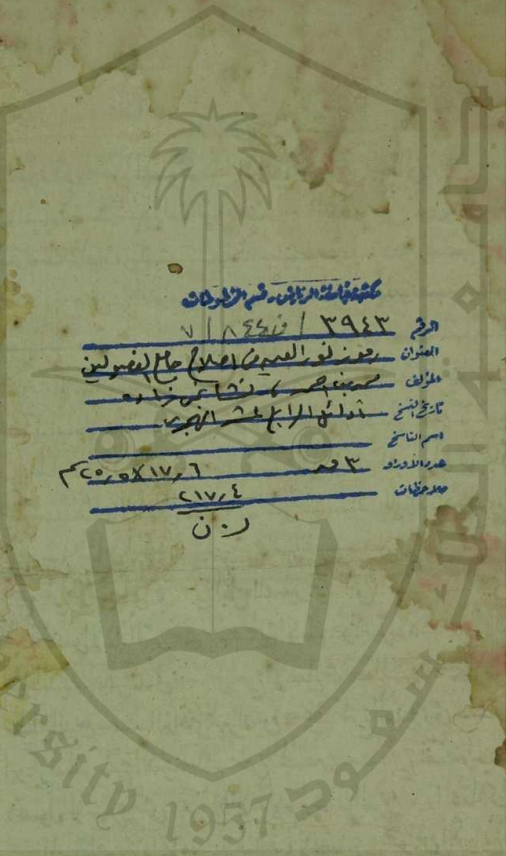 مكتبة جامعة الرياض - قسم المخطوطات
الرقم ٣٩٤٣ / ف ٨٤٤ / ٧
العنوان نور العين في اصلاح جامع الفصولين
المؤلف محمد بن احمد، نشانجي زاده
تاريخ النسخ أوائل الرابع عشر الهجري
اسم الناسخ
عدد الأوراق ٣ ١٧٫٦ X ٢٥٫٥ سم
ملاحظات ٢١٧٫٤
ن
جامعة الملك سعود
ersity 1957